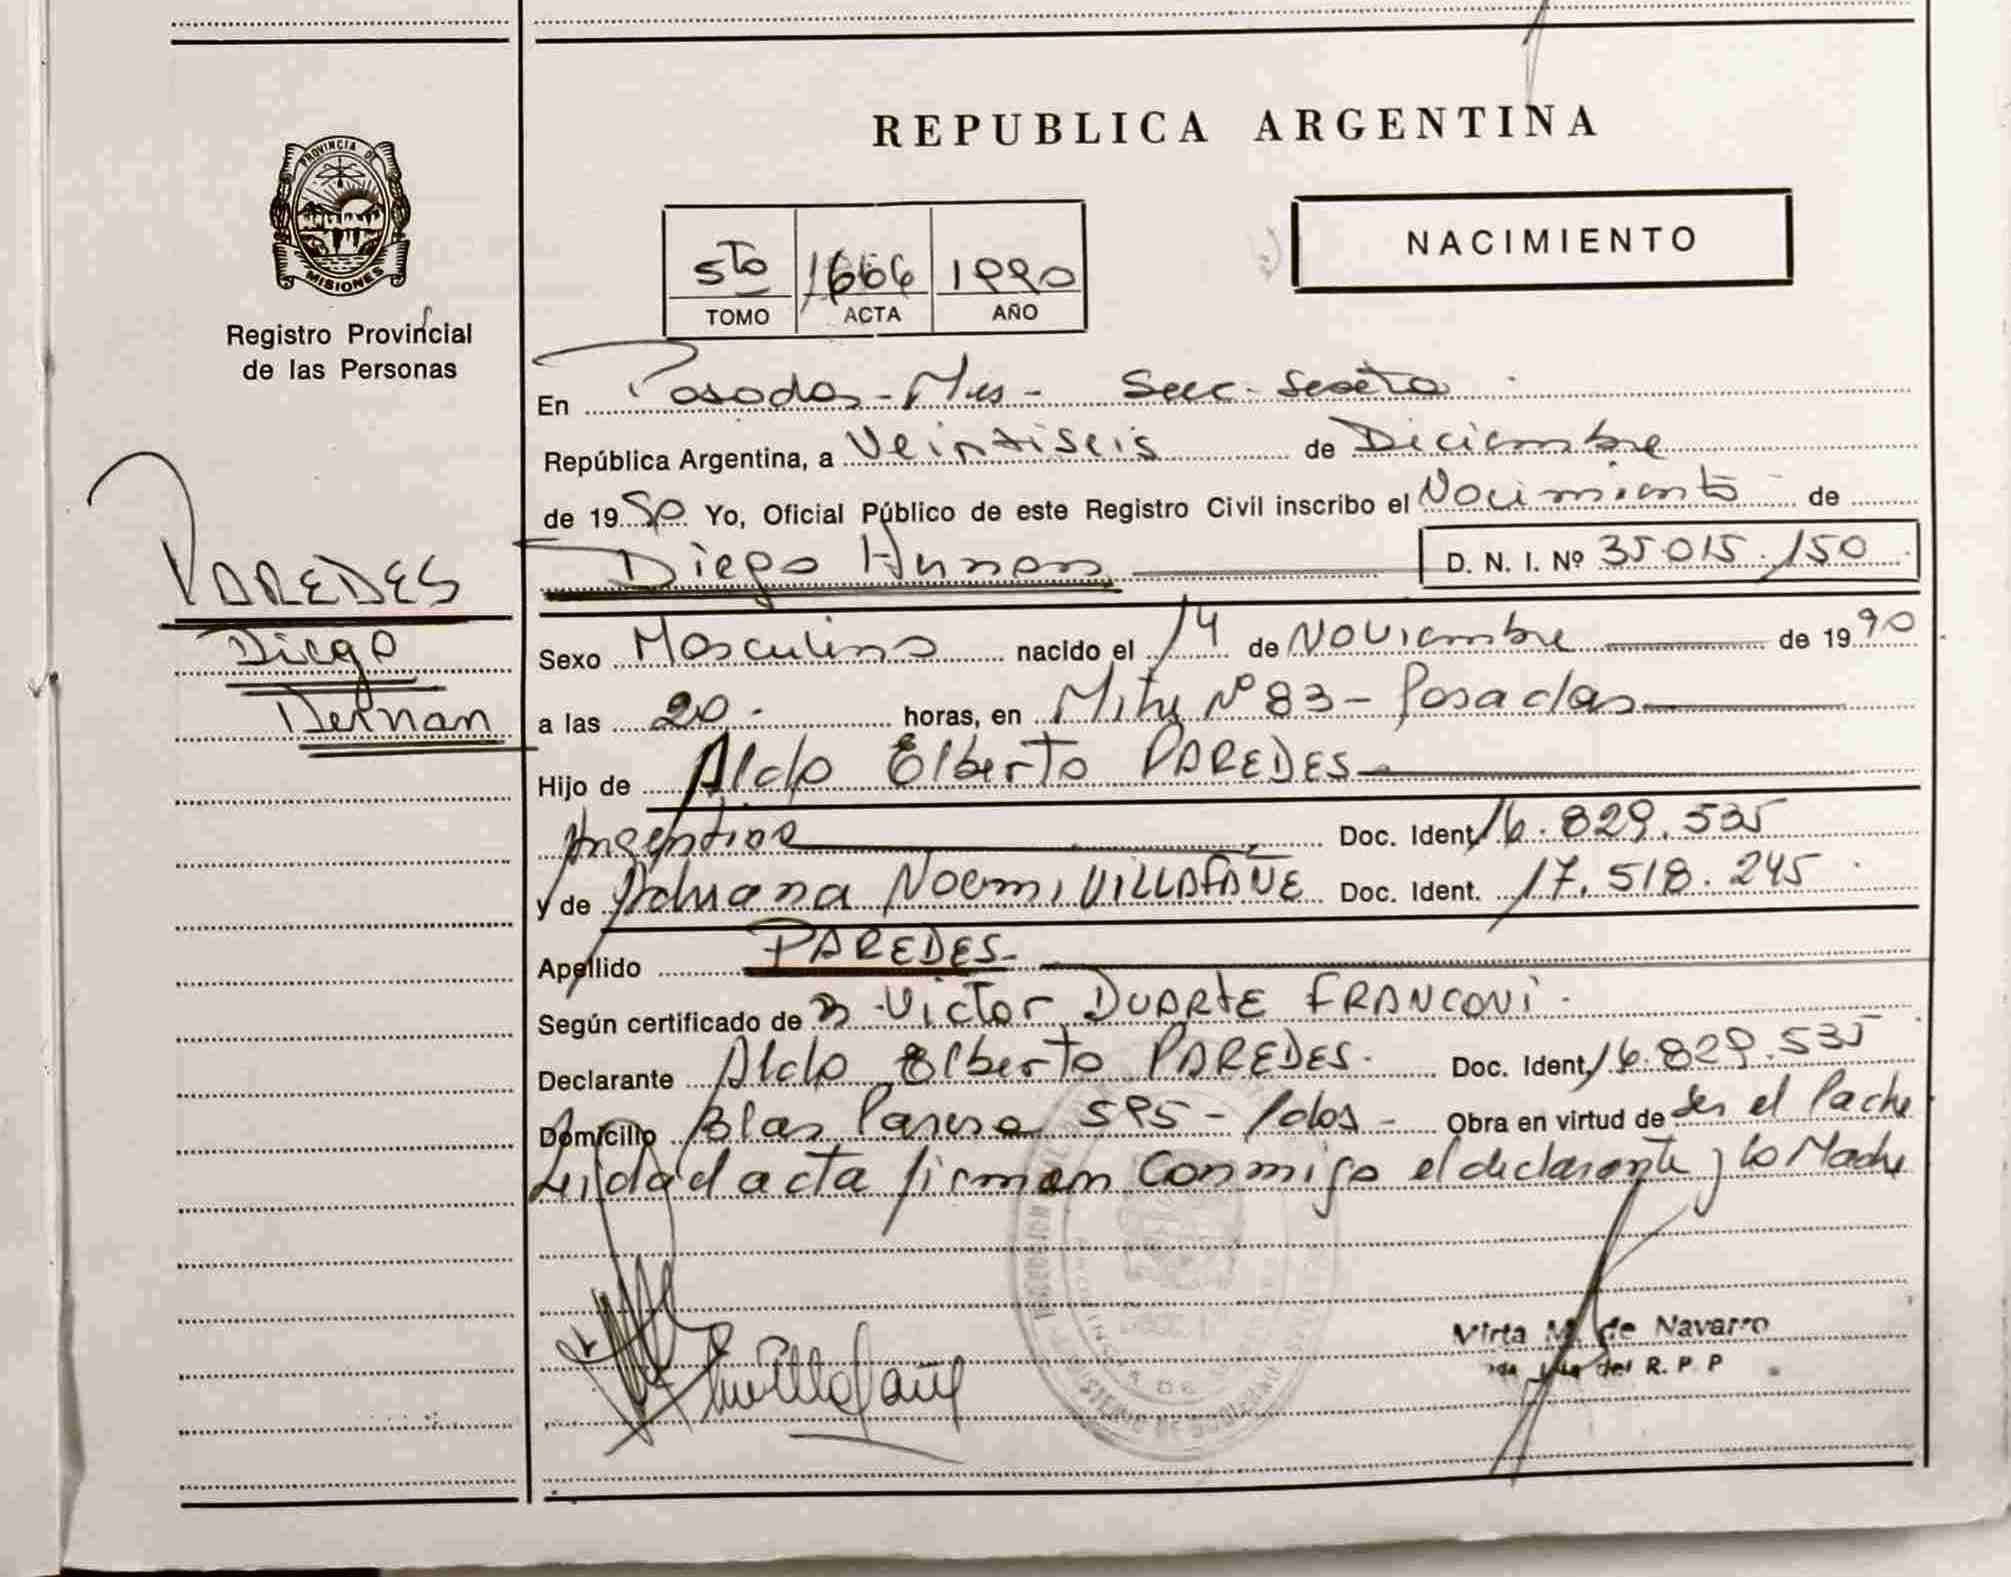 PROVINCIA DE
MISIONES
Registro Provincial
de las Personas
PAREDES
Diego
Hernan
REPUBLICA ARGENTINA
NACIMIENTO
5to 1666 1990
TOMO ACTA AÑO
En Posadas - Mnes - Secc - Sexta
República Argentina, a Veintiseis de Diciembre
de 1990 Yo, Oficial Público de este Registro Civil inscribo el Nacimiento de
Diego Hernan D. N. I. Nº 35.015.150
Sexo Masculino nacido el 14 de Noviembre de 1990
a las 20 - horas, en Mitre Nº 83 - Posadas
Hijo de Aldo Elberto PAREDES
Argentina Doc. Ident. 16.829.535
y de Adriana Noemi VILLAFAÑE Doc. Ident. 17.518.245
Apellido PAREDES -
Según certificado de Victor DUARTE FRANCONI -
Declarante Aldo Elberto PAREDES - Doc. Ident. 16.829.535
Domicilio Blas Parera 595 - Pdas - Obra en virtud de ser el Padre
Leida el acta firman conmigo el declarante y la Madre
Mirta M. de Navarro
del R. P. P